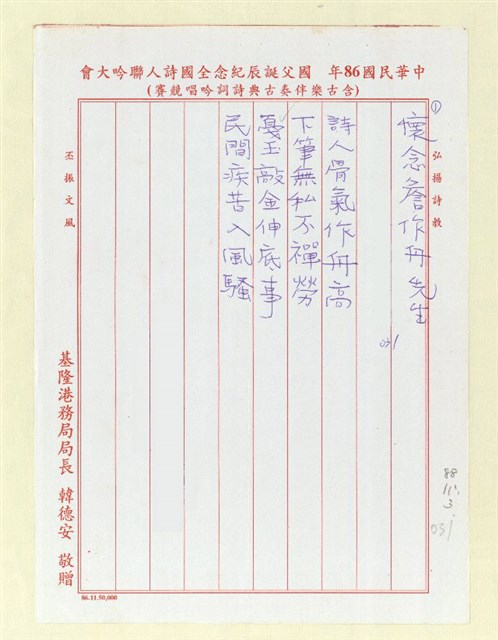 中華民國86年 國父誕辰紀念全國詩人聯吟大會
(含古樂伴奏古典詩詞吟唱競賽)
弘揚詩教
①
懷念詹作舟先生
031
詩人骨氣作舟高
下筆無私不禪勞
戛玉敲金伸底事
民間疾苦入風騷
丕振文風
基隆港務局局長 韓德安 敬贈
88.
11.
3.
031
86.11.50,000